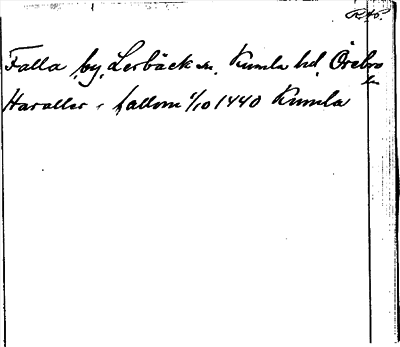 Falla, by, Lerbäck sn. Kumla hd, Örebro
ln
Haraller i fallom 6/10 1440 Kumla